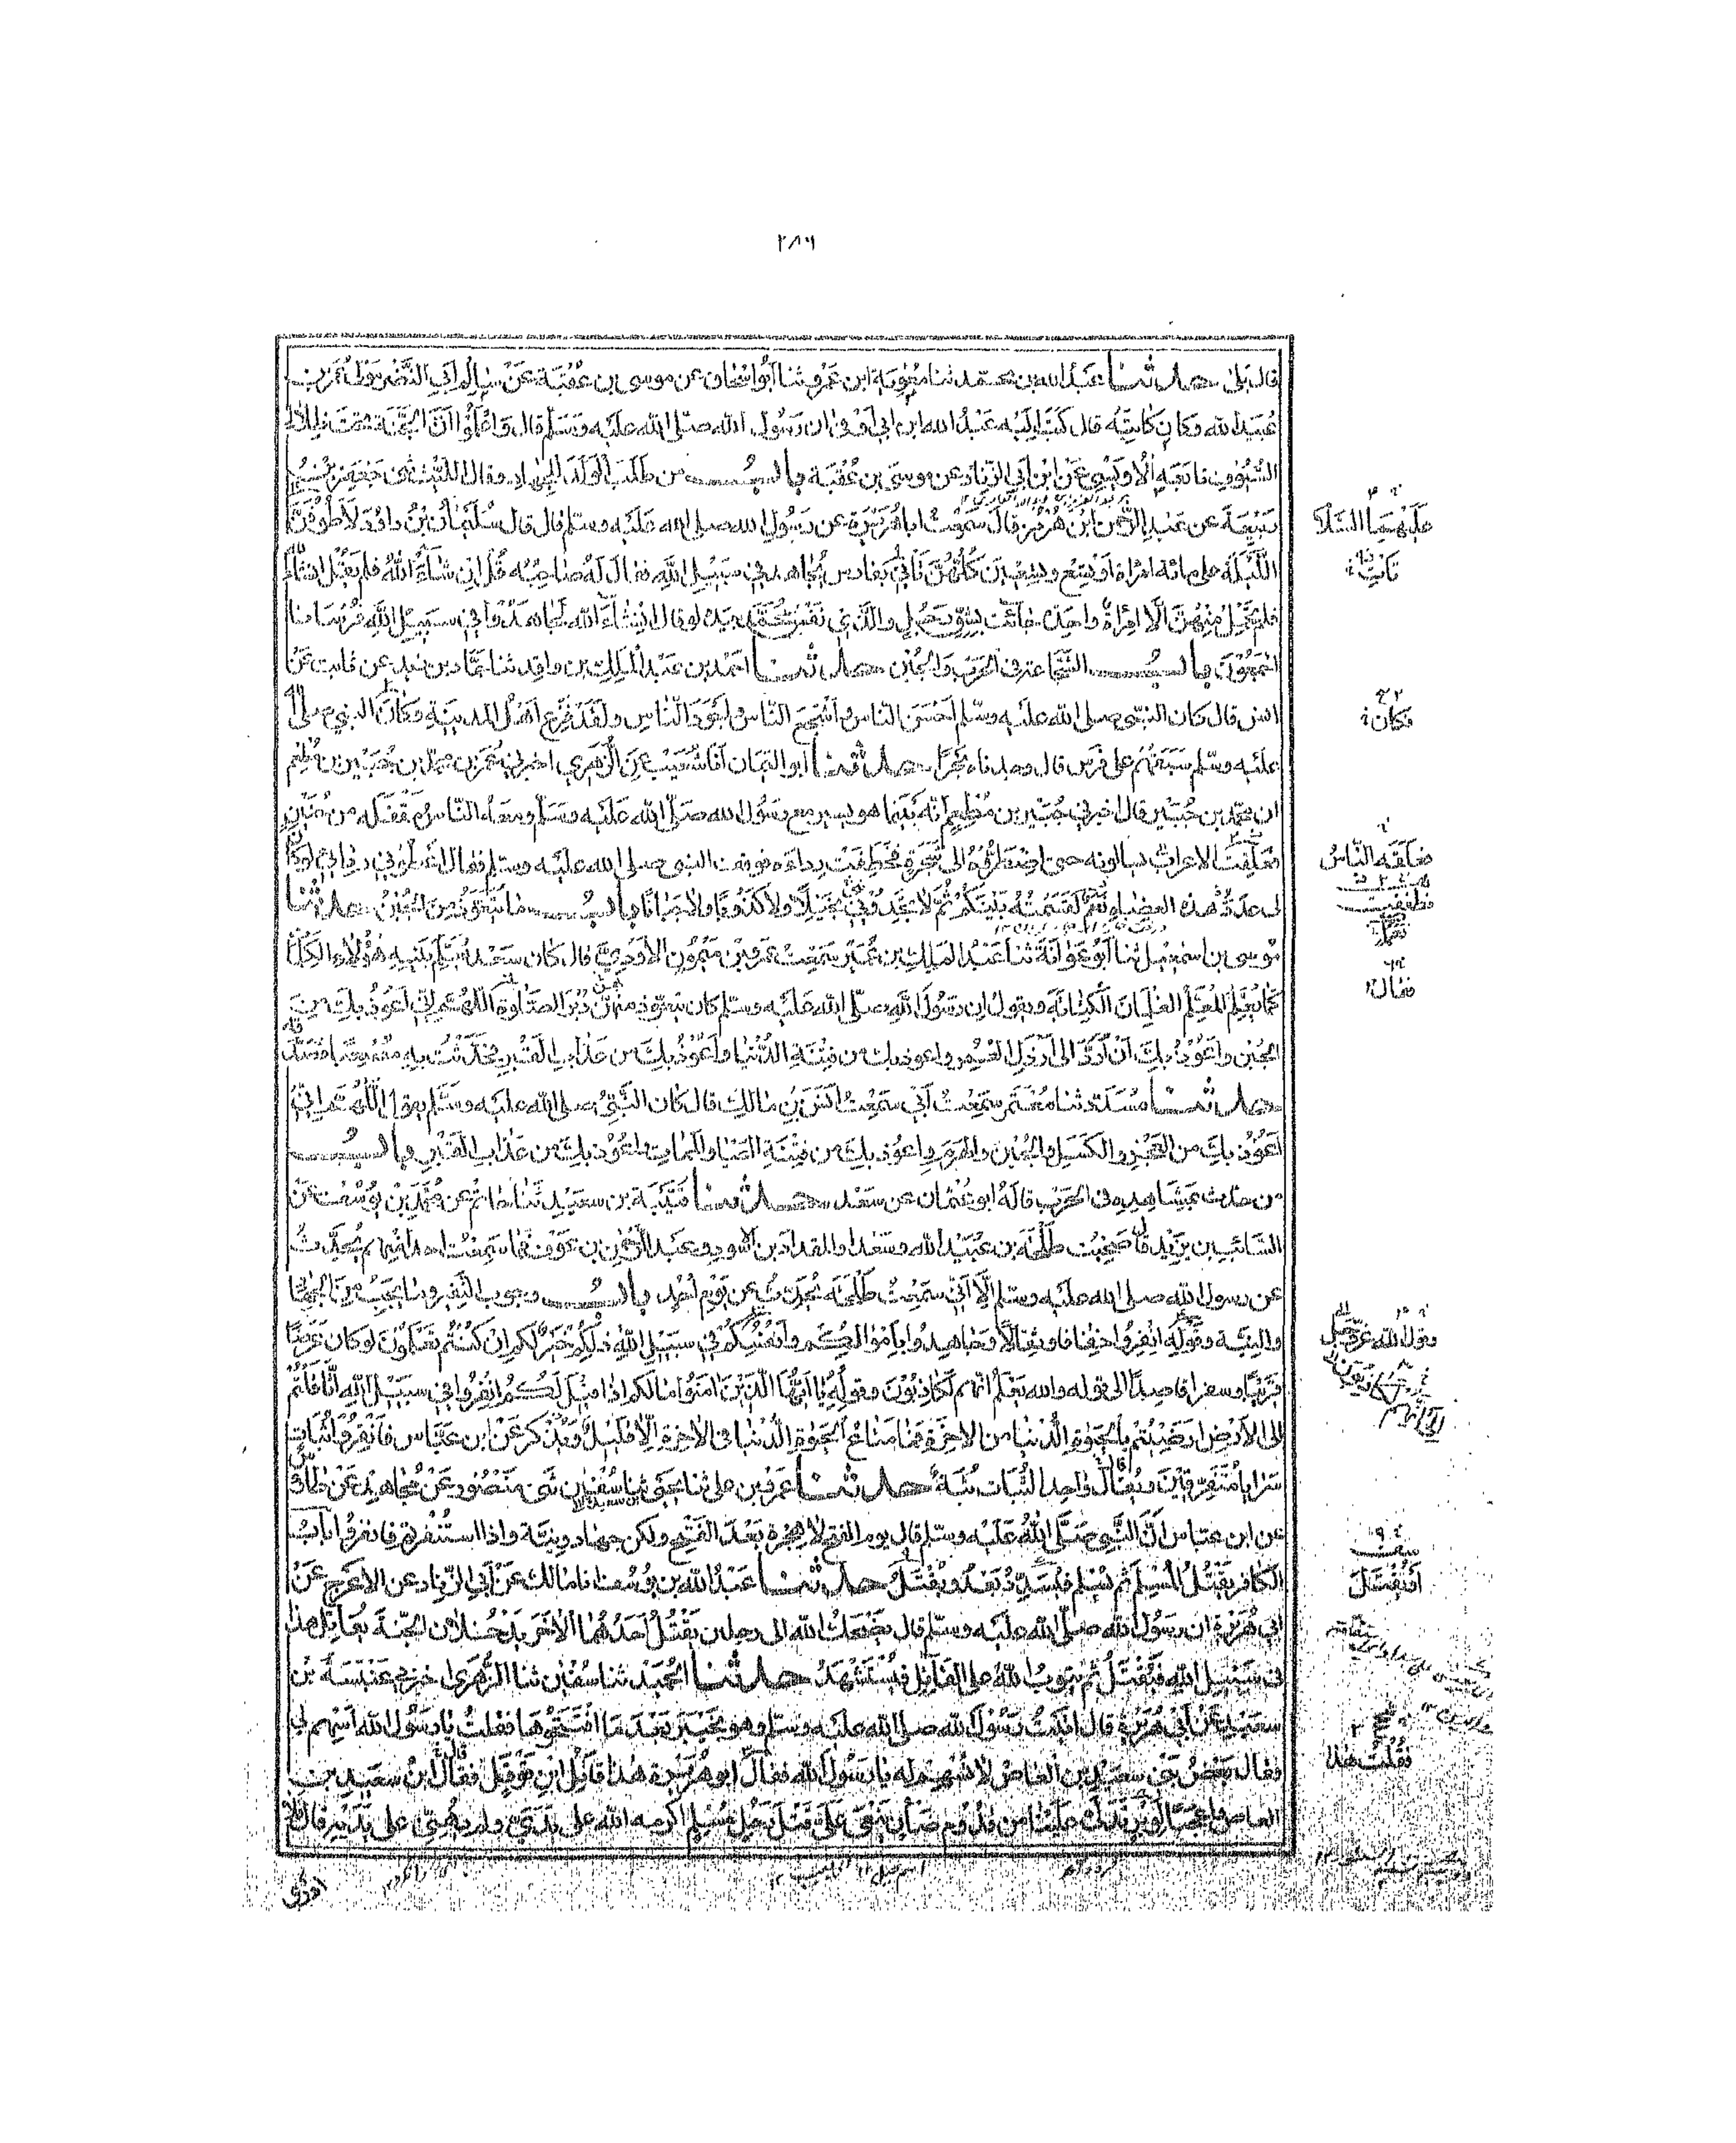 ٢٨٦
قال بلى حدثنا عبد الله بن محمد ثنا معوية ابن عمرو ثنا ابو اسحاق عن موسى بن عقبة عن سالم ابي النضر مولى عمر بن
عبيد الله وكان كاتبه قال كتب اليه عبد الله ابن ابي اوفى ان رسول الله صلى الله عليه وسلم قال واعلموا ان الجنة تحت ظلال
السيوف تابعه الاويسي عن ابن ابي الزناد عن موسى بن عقبة باب من طلب الولد للجهاد وقال الليث ثنى جعفر بن
ربيعة عن عبد الرحمن ابن هرمز قال سمعت ابا هريرة عن رسول الله صلى الله عليه وسلم قال قال سليمان بن داود لاطوفن
الليلة على مائه امراة او تسع وتسعين كلهن تاتي بفارس يجاهد في سبيل الله فقال له صاحبه قل ان شاء الله فلم يقل ان شاء الله
فلم تحمل منهن الا امراة واحدة جاءت بشق رجل والذي نفس محمد بيده لو قال ان شاء الله لجاهدوا في سبيل الله فرسانا
اجمعون باب الشجاعة في الحرب والجبن حدثنا احمد بن عبد الملك بن واقد ثنا حماد بن زيد عن ثابت عن
انس قال كان النبي صلى الله عليه وسلم احسن الناس واشجع الناس واجود الناس ولقد فزع اهل المدينة وكان النبي صلى الله
عليه وسلم سبقهم على فرس قال وجدناه بحرا حدثنا ابو اليمان انا شعيب عن الزهري اخبرني عمر بن محمد بن جبير بن مطعم
ان محمد بن جبير قال اخبرني جبير بن مطعم انه بينما هو يسير مع رسول الله صلى الله عليه وسلم ومعه الناس مقفله من حنين
فعلقت الاعراب يسالونه حتى اضطروه الى شجرة فخطفت رداءه فوقف النبي صلى الله عليه وسلم فقال اعطوني ردائي لو كان
لى عدد هذه العضاه نعم لقسمته بينكم ثم لا تجدوني بخيلا ولا كذوبا ولا جبانا باب ما يتعوذ من الجبن حدثنا
موسى بن اسمعيل ثنا ابو عوانة ثنا عبد الملك بن عمير سمعت عمرو بن ميمون الاودي قال كان سعد يعلم بنيه هؤلاء الكلمات
كما يعلم المعلم الغلمان الكتابة ويقول ان رسول الله صلى الله عليه وسلم كان يتعوذ منهن دبر الصلوة اللهم اني اعوذ بك من
الجبن واعوذ بك ان ارد الى ارذل العمر واعوذ بك من فتنة الدنيا واعوذ بك من عذاب القبر فحدثت به مصعبا فصدقه
حدثنا مسدد ثنا معتمر سمعت ابي سمعت انس بن مالك قال كان النبي صلى الله عليه وسلم يقول اللهم اني
اعوذ بك من العجز والكسل والجبن والهرم واعوذ بك من فتنة المحيا والممات واعوذ بك من عذاب القبر باب
من حدث بمشاهده في الحرب قاله ابو عثمان عن سعد حدثنا قتيبة بن سعيد ثنا حاتم عن محمد بن يوسف عن
السائب بن يزيد قال صحبت طلحة بن عبيد الله وسعدا والمقداد بن الاسود وعبد الرحمن بن عوف فما سمعت احدا منهم يحدث
عن رسول الله صلى الله عليه وسلم الا اني سمعت طلحة يحدث عن يوم احد باب وجوب النفير وما يجب من الجهاد
والنية وقوله انفروا خفافا وثقالا وجاهدوا باموالكم وانفسكم في سبيل الله ذلكم خير لكم ان كنتم تعلمون لو كان عرضا
قريبا وسفرا قاصدا الى قوله والله يعلم انهم لكاذبون وقوله يا ايها الذين امنوا ما لكم اذا قيل لكم انفروا في سبيل الله اثاقلتم
الى الارض ارضيتم بالحيوة الدنيا من الاخرة فما متاع الحيوة الدنيا في الاخرة الا قليل ويذكر عن ابن عباس فانفروا ثبات
سرايا متفرقين ويقال واحد الثبات ثبة حدثنا عمرو بن على ثنا يحيى ثنا سفين ثنى منصور عن مجاهد عن طاؤس
عن ابن عباس ان النبي صلى الله عليه وسلم قال يوم الفتح لا هجرة بعد الفتح ولكن جهاد ونية واذا استنفرتم فانفروا باب
الكافر يقتل المسلم ثم يسلم فيسدد بعد ويقتل حدثنا عبد الله بن يوسف انا مالك عن ابي الزناد عن الاعرج عن
ابي هريرة ان رسول الله صلى الله عليه وسلم قال يضحك الله الى رجلين يقتل احدهما الاخر يدخلان الجنة يقاتل هذا
في سبيل الله فيقتل ثم يتوب الله على القاتل فيستشهد حدثنا الحميدي ثنا سفيان ثنا الزهري اخبرني عنبسة بن
سعيد عن ابي هريرة قال اتيت رسول الله صلى الله عليه وسلم وهو بخيبر بعد ما افتتحوها فقلت يا رسول الله اسهم لي
فقال بعض بني سعيد بن العاص لا تسهم له يا رسول الله فقال ابو هريرة هذا قاتل ابن قوقل فقال ابن سعيد بن
العاص واعجبا لوبر تدلى علينا من قدوم ضأن ينعى علي قتل رجل مسلم اكرمه الله على يدي ولم يهني على يديه قال فلا
ادري
عليهما السلام
تاتي
فكان
فعلقه الناس
فخطفت
فقال
وقول الله عز وجل
الآية
او يقتل
فقلت هذا